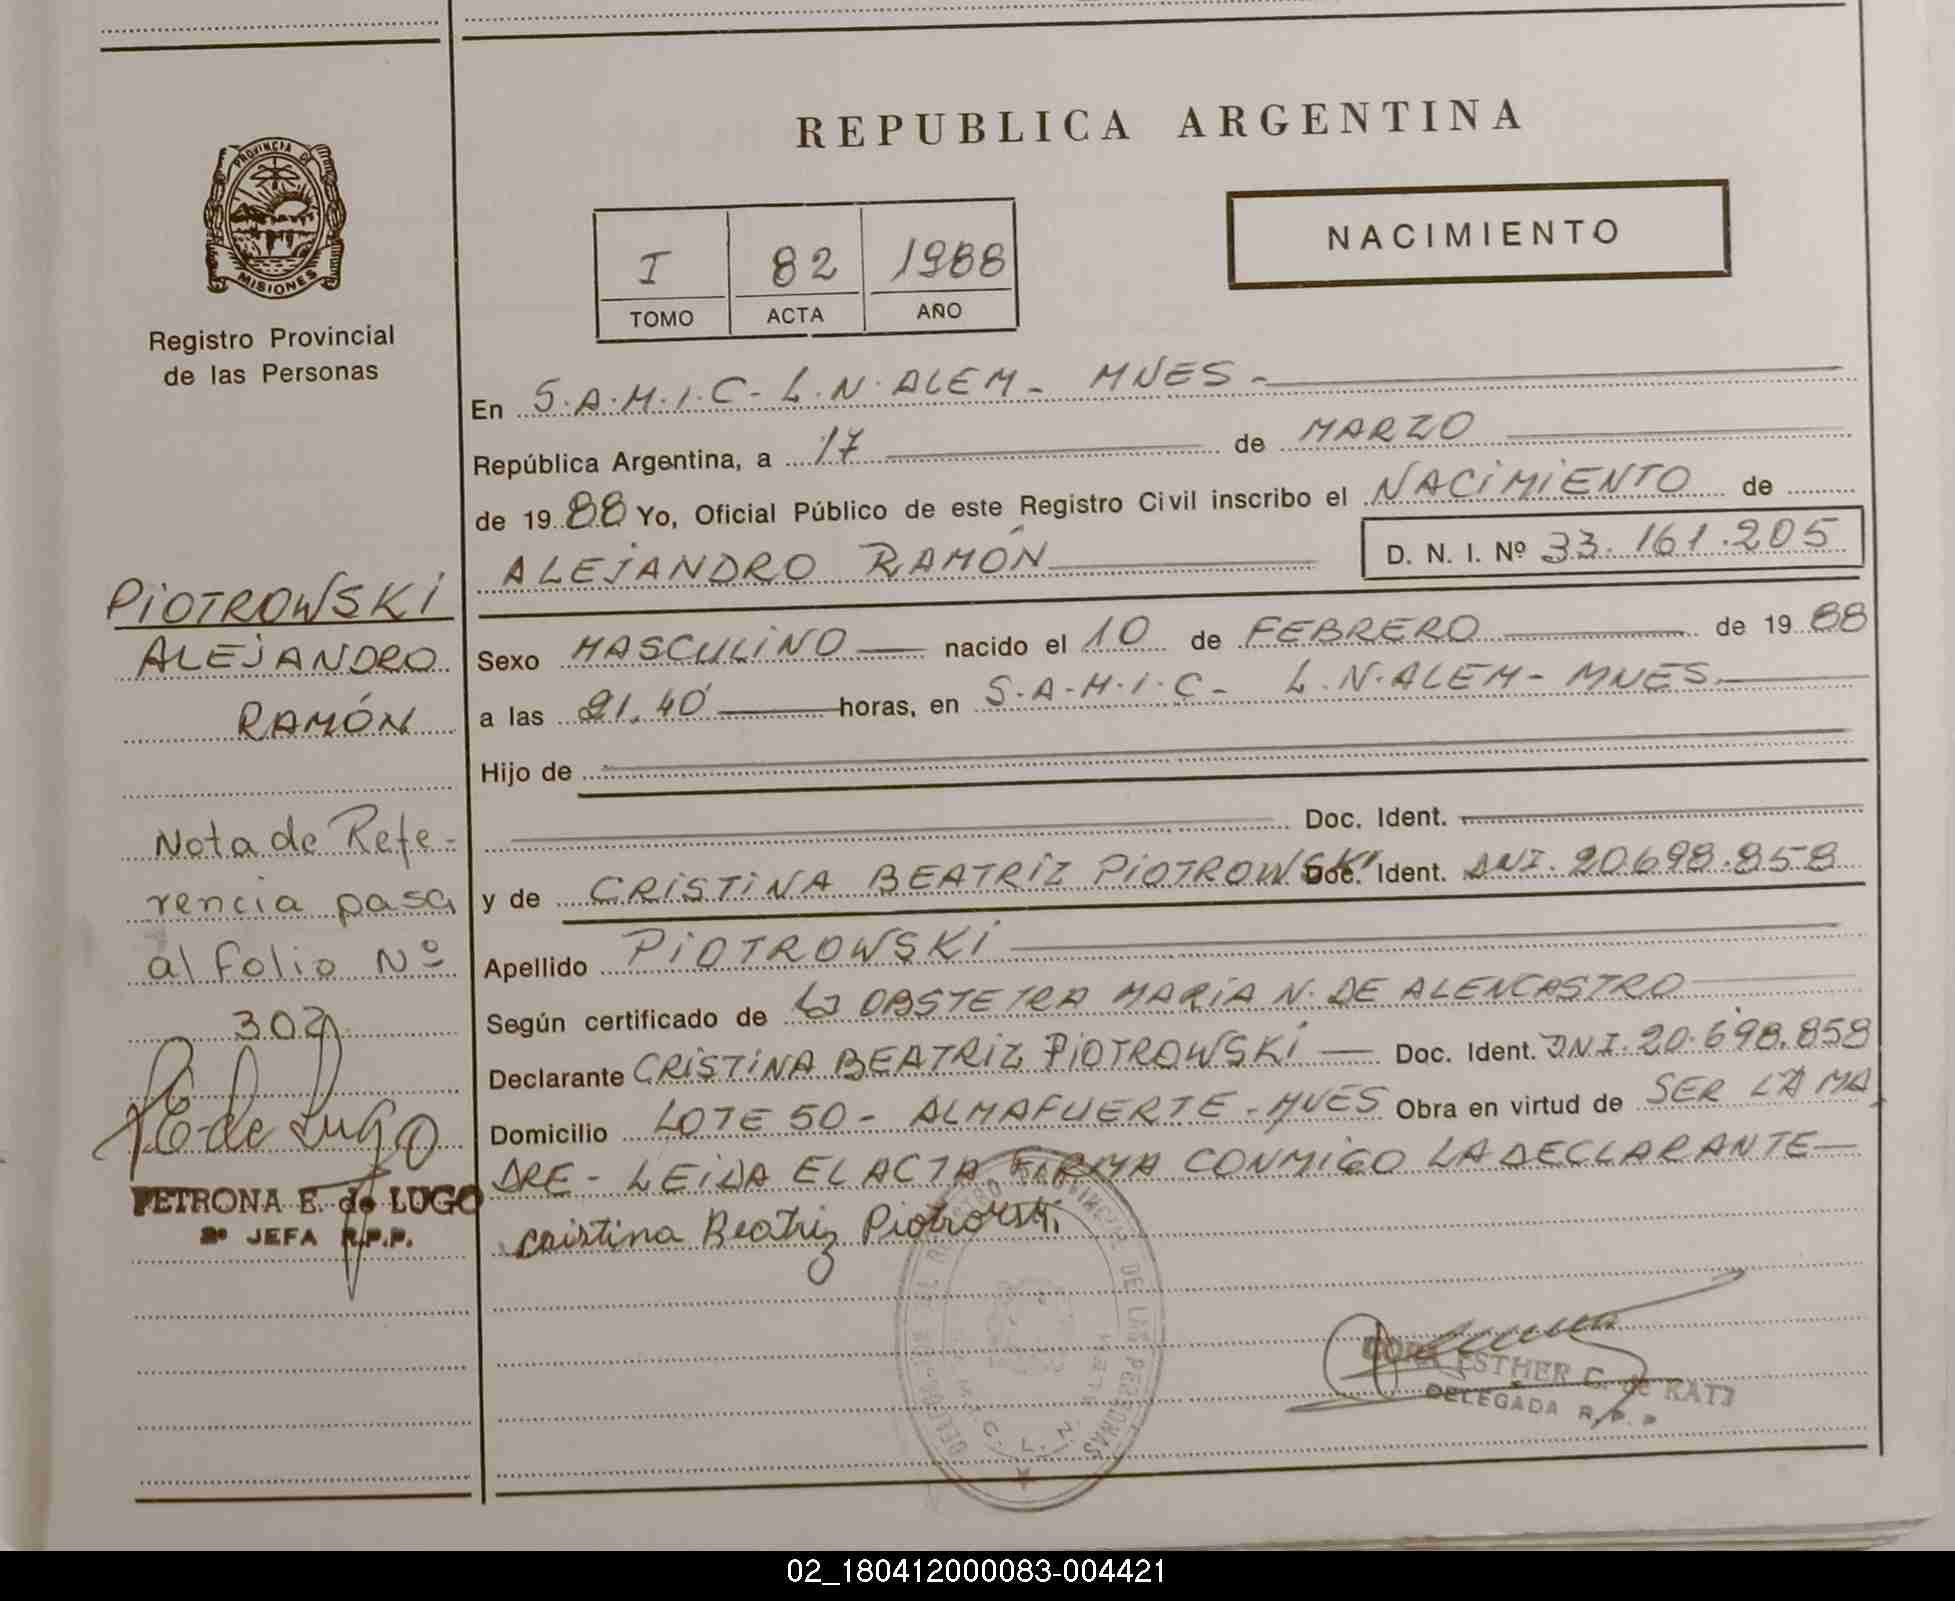 REPUBLICA ARGENTINA
PROVINCIA DE
MISIONES
Registro Provincial
de las Personas
I 82 1988
TOMO ACTA AÑO
NACIMIENTO
En S.A.M.I.C - L.N. ALEM - MNES -
República Argentina, a 17 de MARZO
de 19 88 Yo, Oficial Público de este Registro Civil inscribo el NACIMIENTO de
ALEJANDRO RAMÓN D. N. I. Nº 33.161.205
Sexo MASCULINO nacido el 10 de FEBRERO de 19 88
a las 21.40 horas, en S.A.M.I.C - L.N. ALEM - MNES.
Hijo de
Doc. Ident.
y de CRISTINA BEATRIZ PIOTROWSKI Doc. Ident. DNI. 20.698.858
Apellido PIOTROWSKI
Según certificado de La OBSTETRA MARIA N. DE ALENCASTRO
Declarante CRISTINA BEATRIZ PIOTROWSKI Doc. Ident. DNI. 20.698.858
Domicilio LOTE 50 - ALMAFUERTE - MNES Obra en virtud de SER LA MA
DRE - LEIDA EL ACTA FIRMA CONMIGO LA DECLARANTE
Cristina Beatriz Piotrowski
PIOTROWSKI
ALEJANDRO
RAMÓN
Nota de Refe-
rencia pasa
al folio Nº
302
E. de Lugo
PETRONA E. de LUGO
2º JEFA R.P.P.
REGISTRO PROVINCIAL DE LAS PERSONAS
ESTHER C. de KATZ
DELEGADA R.P.P
02_180412000083-004421